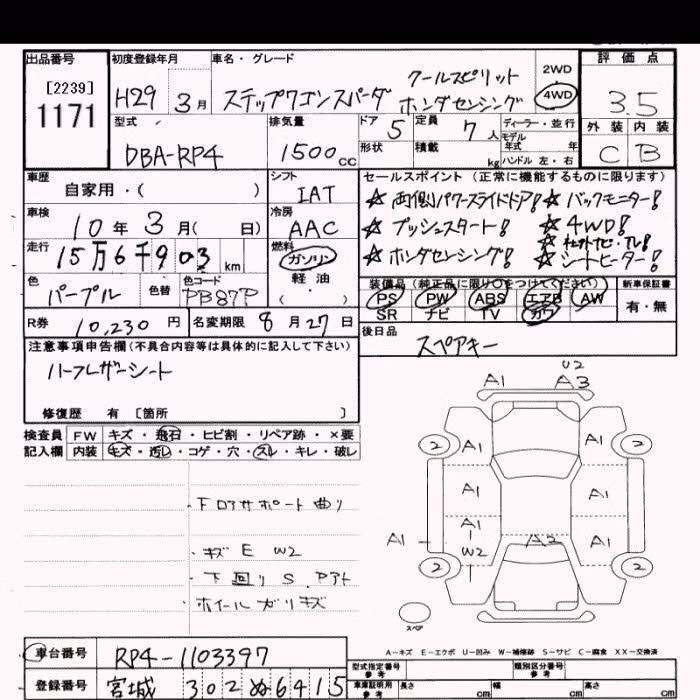 出品番号 初度登録年月 車名・グレード 評価点
[2239]
1171
H29 3月 ステップワゴンスパーダ クールスピリット ホンダセンシング 2WD 4WD 3.5
型式 排気量 ドア 定員 ディーラー・並行 外装 内装
DBA-RP4 1500cc 5 7人 モデル年式 年 C B
形状 積載 kg ハンドル 左・右
車歴 シフト セールスポイント(正常に機能するものに限ります)
自家用・( ) IAT ☆両側パワースライドドア! ☆バックモニター!
車検 冷房 ☆プッシュスタート! ☆4WD!
10年3月( 日) AAC ☆社外ナビ・TV!
走行 燃料 ☆ホンダセンシング! ☆シートヒーター!
15万6千903km ガソリン
軽油
( )
色 色替 色コード 装備品(純正品に限り○をつけてください) 新車保証書
パープル PB87P PS PW ABS エアB AW 有・無
SR ナビ TV カワ
R券 10,230円 名変期限 8月27日 後日品
スペアキー
注意事項申告欄(不具合内容等は具体的に記入して下さい)
ハーフレザーシート
修復歴 有 [箇所 ]
検査員 FW キズ・飛石・ヒビ割・リペア跡・×要
記入欄 内装 キズ・汚レ・コゲ・穴・スレ・キレ・破レ
U2
A1 A3
2 A1 A1 2
A1 A1
A1 A1 W2 A2 A1
2 2
・Fロアサポート曲り
・キズ E W2
・下回りS.Pアト
・ホイールガリキズ
スペア
A-キズ E-エクボ U-凹み W-補修跡 S-サビ C-腐食 XX-交換済
車台番号 RP4-1103397 型式指定番号 参考 類別区分番号 参考
登録番号 宮城 302 ぬ 6415 車庫証明用 参考 長さ cm 幅 cm 高さ cm